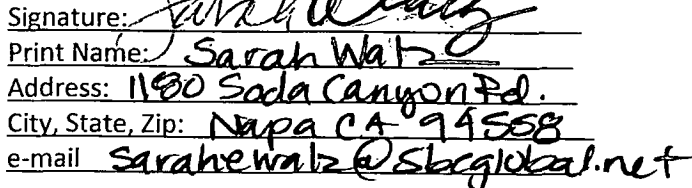 Signature: Sarah Walz
Print Name: Sarah Walz
Address: 1180 Soda Canyon Rd.
City, State, Zip: Napa CA 94558
e-mail sarahewalz@sbcglobal.net